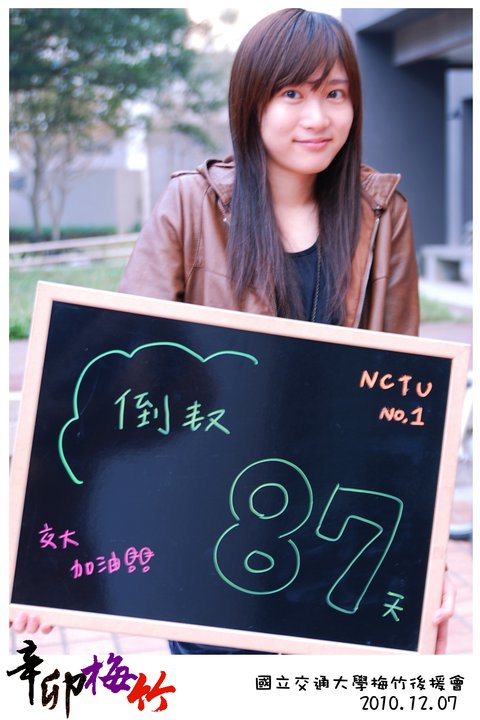 倒数
NCTU
NO.1
87天
交大
加油!!
辛卯梅竹
國立交通大學梅竹後援會
2010.12.07